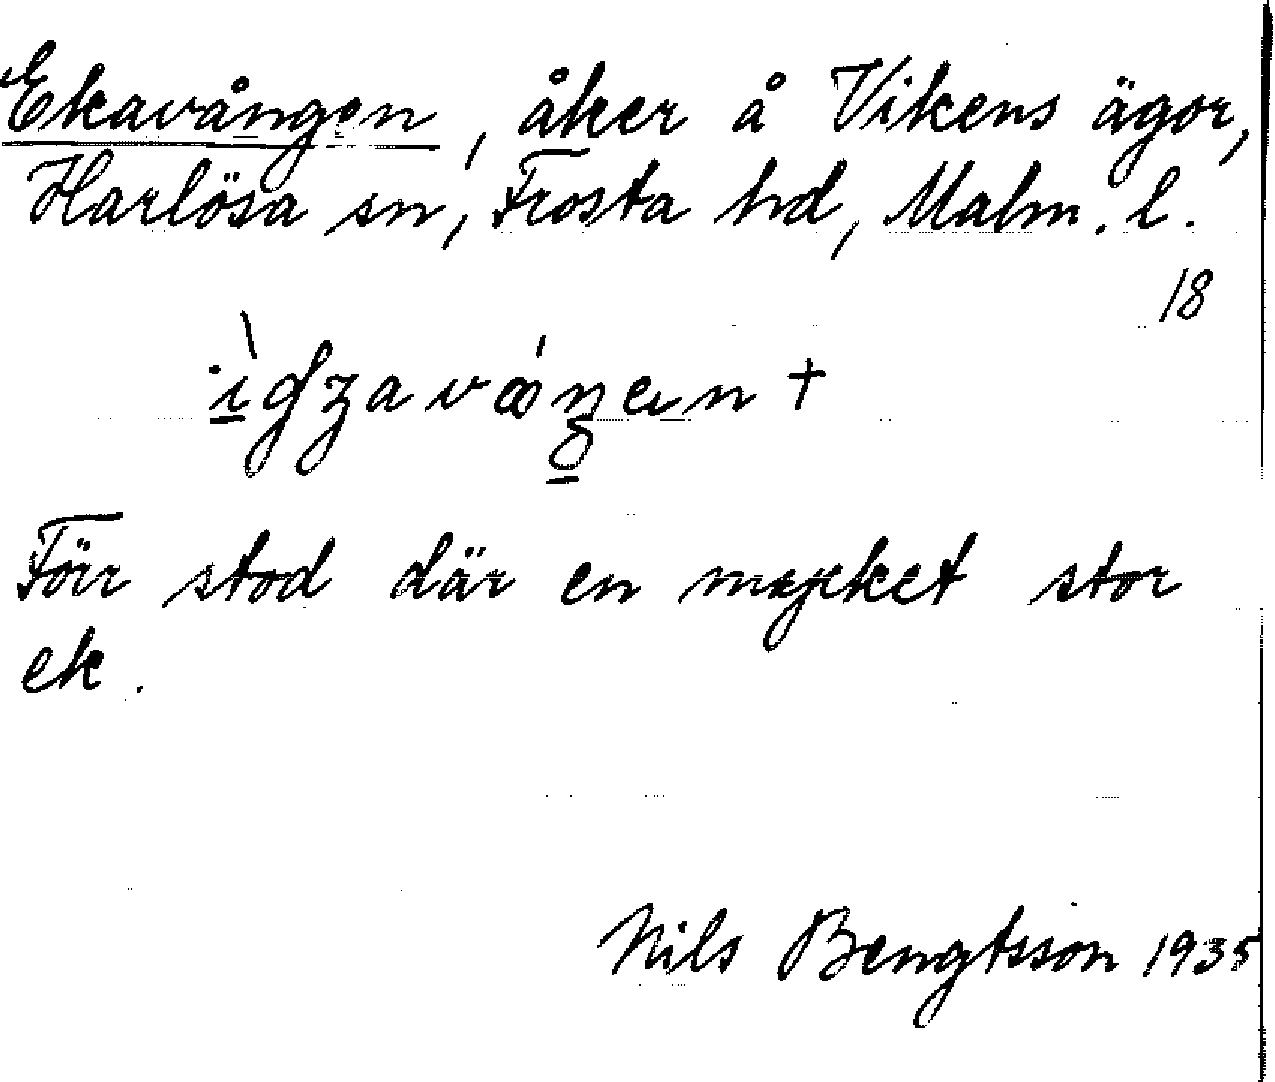 Ekavången, åker å Vikens ägor,
Harlösa sn, Frosta hd, Malm. l.
18
Förr stod där en mycket stor
ek.
Nils Bengtsson 1935